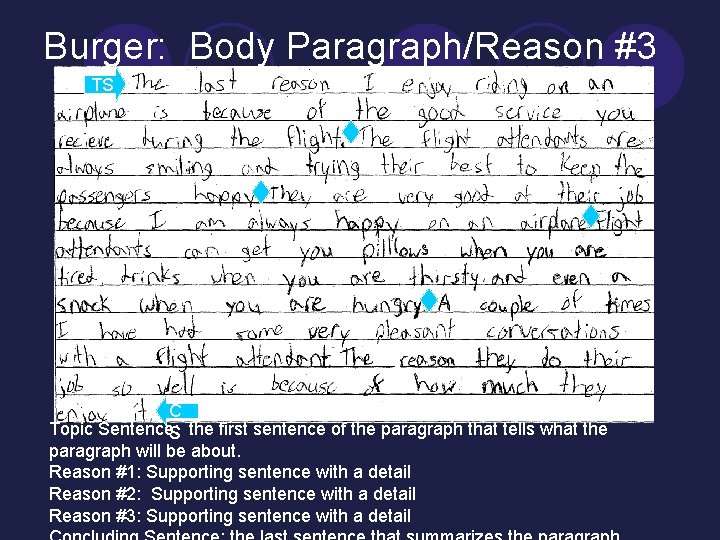 Burger: Body Paragraph/Reason #3
TS The last reason I enjoy riding on an
airplane is because of the good service you
recieve during the flight. The flight attendants are
always smiling and trying their best to keep the
passengers happy. They are very good at their job
because I am always happy on an airplane. Flight
attendants can get you pilllows when you are
tired, drinks when you are thirsty, and even a
snack when you are hungry. A couple of times
I have had some very pleasant conversations
with a flight attendant. The reason they do their
job so well is because of how much they
enjoy it. C
S
Topic Sentence: the first sentence of the paragraph that tells what the
paragraph will be about.
Reason #1: Supporting sentence with a detail
Reason #2: Supporting sentence with a detail
Reason #3: Supporting sentence with a detail
Concluding Sentence: the last sentence that summarizes the paragraph